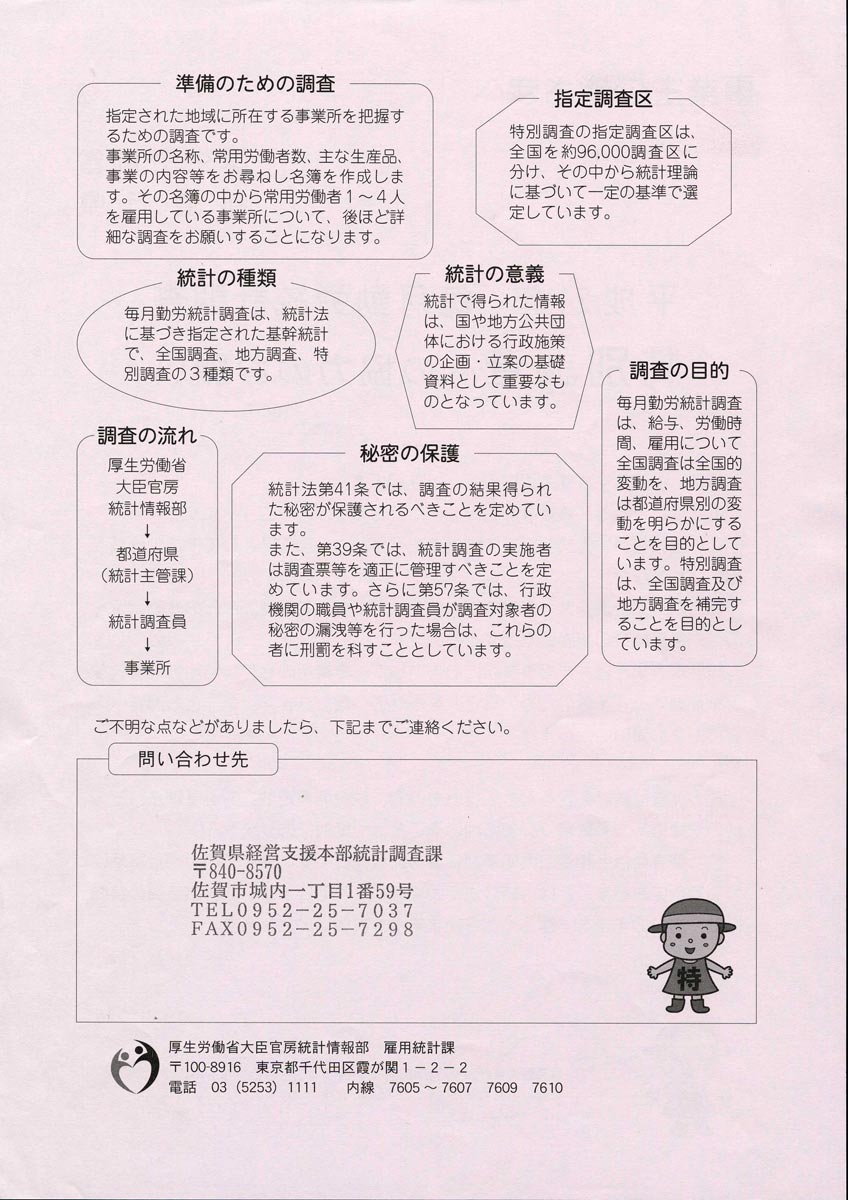 準備のための調査
指定された地域に所在する事業所を把握す
るための調査です。
事業所の名称、常用労働者数、主な生産品、
事業の内容等をお尋ねし名簿を作成しま
す。その名簿の中から常用労働者1~4人
を雇用している事業所について、後ほど詳
細な調査をお願いすることになります。
指定調査区
特別調査の指定調査区は、
全国を約96,000調査区に
分け、その中から統計理論
に基づいて一定の基準で選
定しています。
統計の種類
毎月勤労統計調査は、統計法
に基づき指定された基幹統計
で、全国調査、地方調査、特
別調査の3種類です。
統計の意義
統計で得られた情報
は、国や地方公共団
体における行政施策
の企画・立案の基礎
資料として重要なも
のとなっています。
調査の目的
毎月勤労統計調査
は、給与、労働時
間、雇用について
全国調査は全国的
変動を、地方調査
は都道府県別の変
動を明らかにする
ことを目的として
います。特別調査
は、全国調査及び
地方調査を補完す
ることを目的とし
ています。
調査の流れ
厚生労働省
大臣官房
統計情報部
↓
都道府県
(統計主管課)
↓
統計調査員
↓
事業所
秘密の保護
統計法第41条では、調査の結果得られ
た秘密が保護されるべきことを定めてい
ます。
また、第39条では、統計調査の実施者
は調査票等を適正に管理すべきことを定
めています。さらに第57条では、行政
機関の職員や統計調査員が調査対象者の
秘密の漏洩等を行った場合は、これらの
者に刑罰を科すこととしています。
ご不明な点などがありましたら、下記までご連絡ください。
問い合わせ先
佐賀県経営支援本部統計調査課
〒840-8570
佐賀市城内一丁目1番59号
TEL0952-25-7037
FAX0952-25-7298
特
厚生労働省大臣官房統計情報部 雇用統計課
〒100-8916 東京都千代田区霞が関1-2-2
電話 03(5253)1111 内線 7605~7607 7609 7610